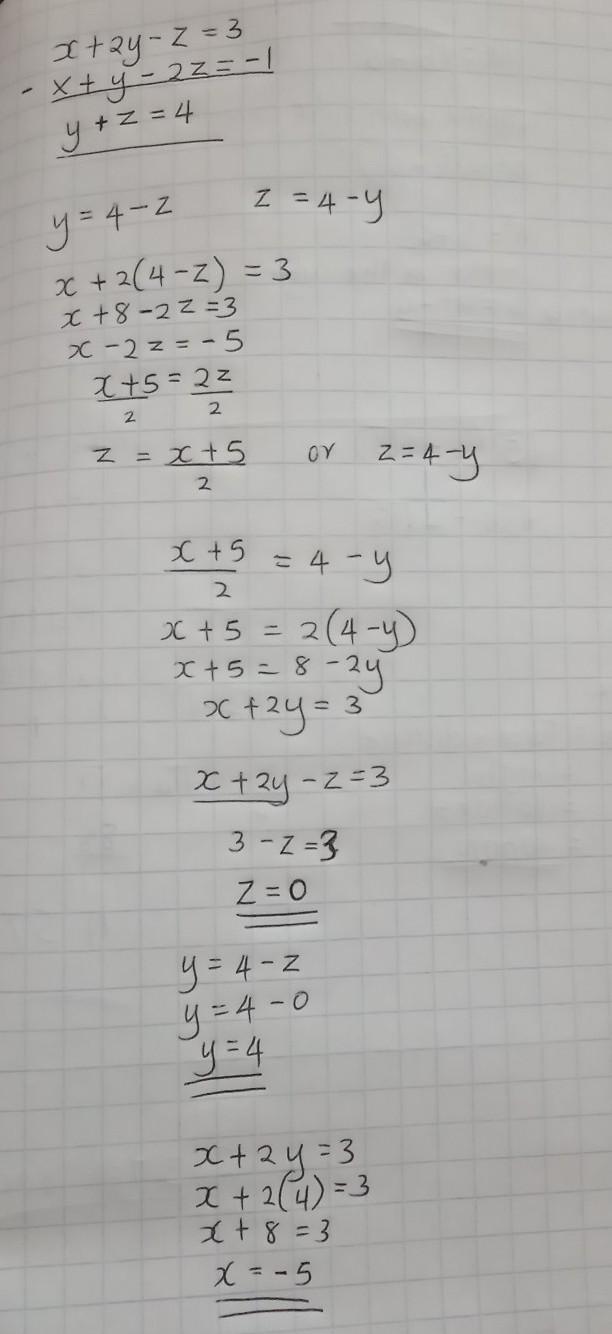 x + 2y - z = 3
- x + y - 2z = -1
y + z = 4
y = 4 - z z = 4 - y
x + 2(4 - z) = 3
x + 8 - 2z = 3
x - 2z = -5
x + 5 = 2z
2 2
z = x + 5 or z = 4 - y
2
x + 5 = 4 - y
2
x + 5 = 2(4 - y)
x + 5 = 8 - 2y
x + 2y = 3
x + 2y - z = 3
3 - z = 3
z = 0
y = 4 - z
y = 4 - 0
y = 4
x + 2y = 3
x + 2(4) = 3
x + 8 = 3
x = -5